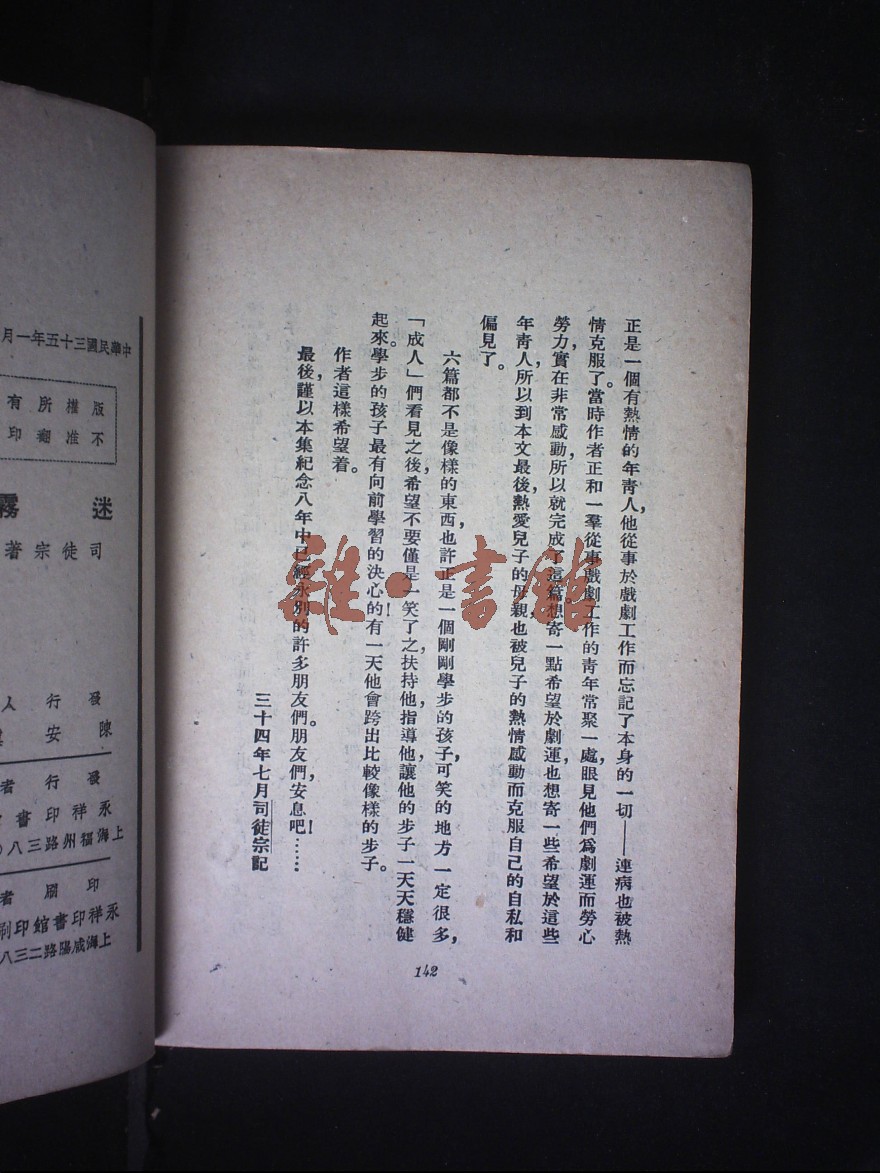 正是一個有熱情的年青人，他從事於戲劇工作而忘記了本身的一切——連病也被熱
情克服了。當時作者正和一羣從事戲劇工作的青年常聚一處，眼見他們爲劇運而勞心
勞力，實在非常感動，所以就完成了這篇想寄一點希望於劇運，也想寄一些希望於這些
年青人，所以到本文最後，熱愛兒子的母親也被兒子的熱情感動而克服自己的自私和
偏見了。
六篇都不是像樣的東西，也許正是一個剛剛學步的孩子，可笑的地方一定很多，
「成人」們看見之後，希望不要僅是一笑了之，扶持他，指導他，讓他的步子一天天穩健
起來。學步的孩子最有向前學習的決心的！有一天他會跨出比較像樣的步子。
作者這樣希望着。
最後，謹以本集紀念八年中已經永別的許多朋友們。朋友們，安息吧！……
三十四年七月司徒宗記
142
雜·書館
中華民國三十五年一月
版權所有
不准翻印
迷霧
司徒宗著
發行人
陳安
發行者
永祥印書
上海福州路三八
印刷者
永祥印書館印刷
上海咸陽路二三八